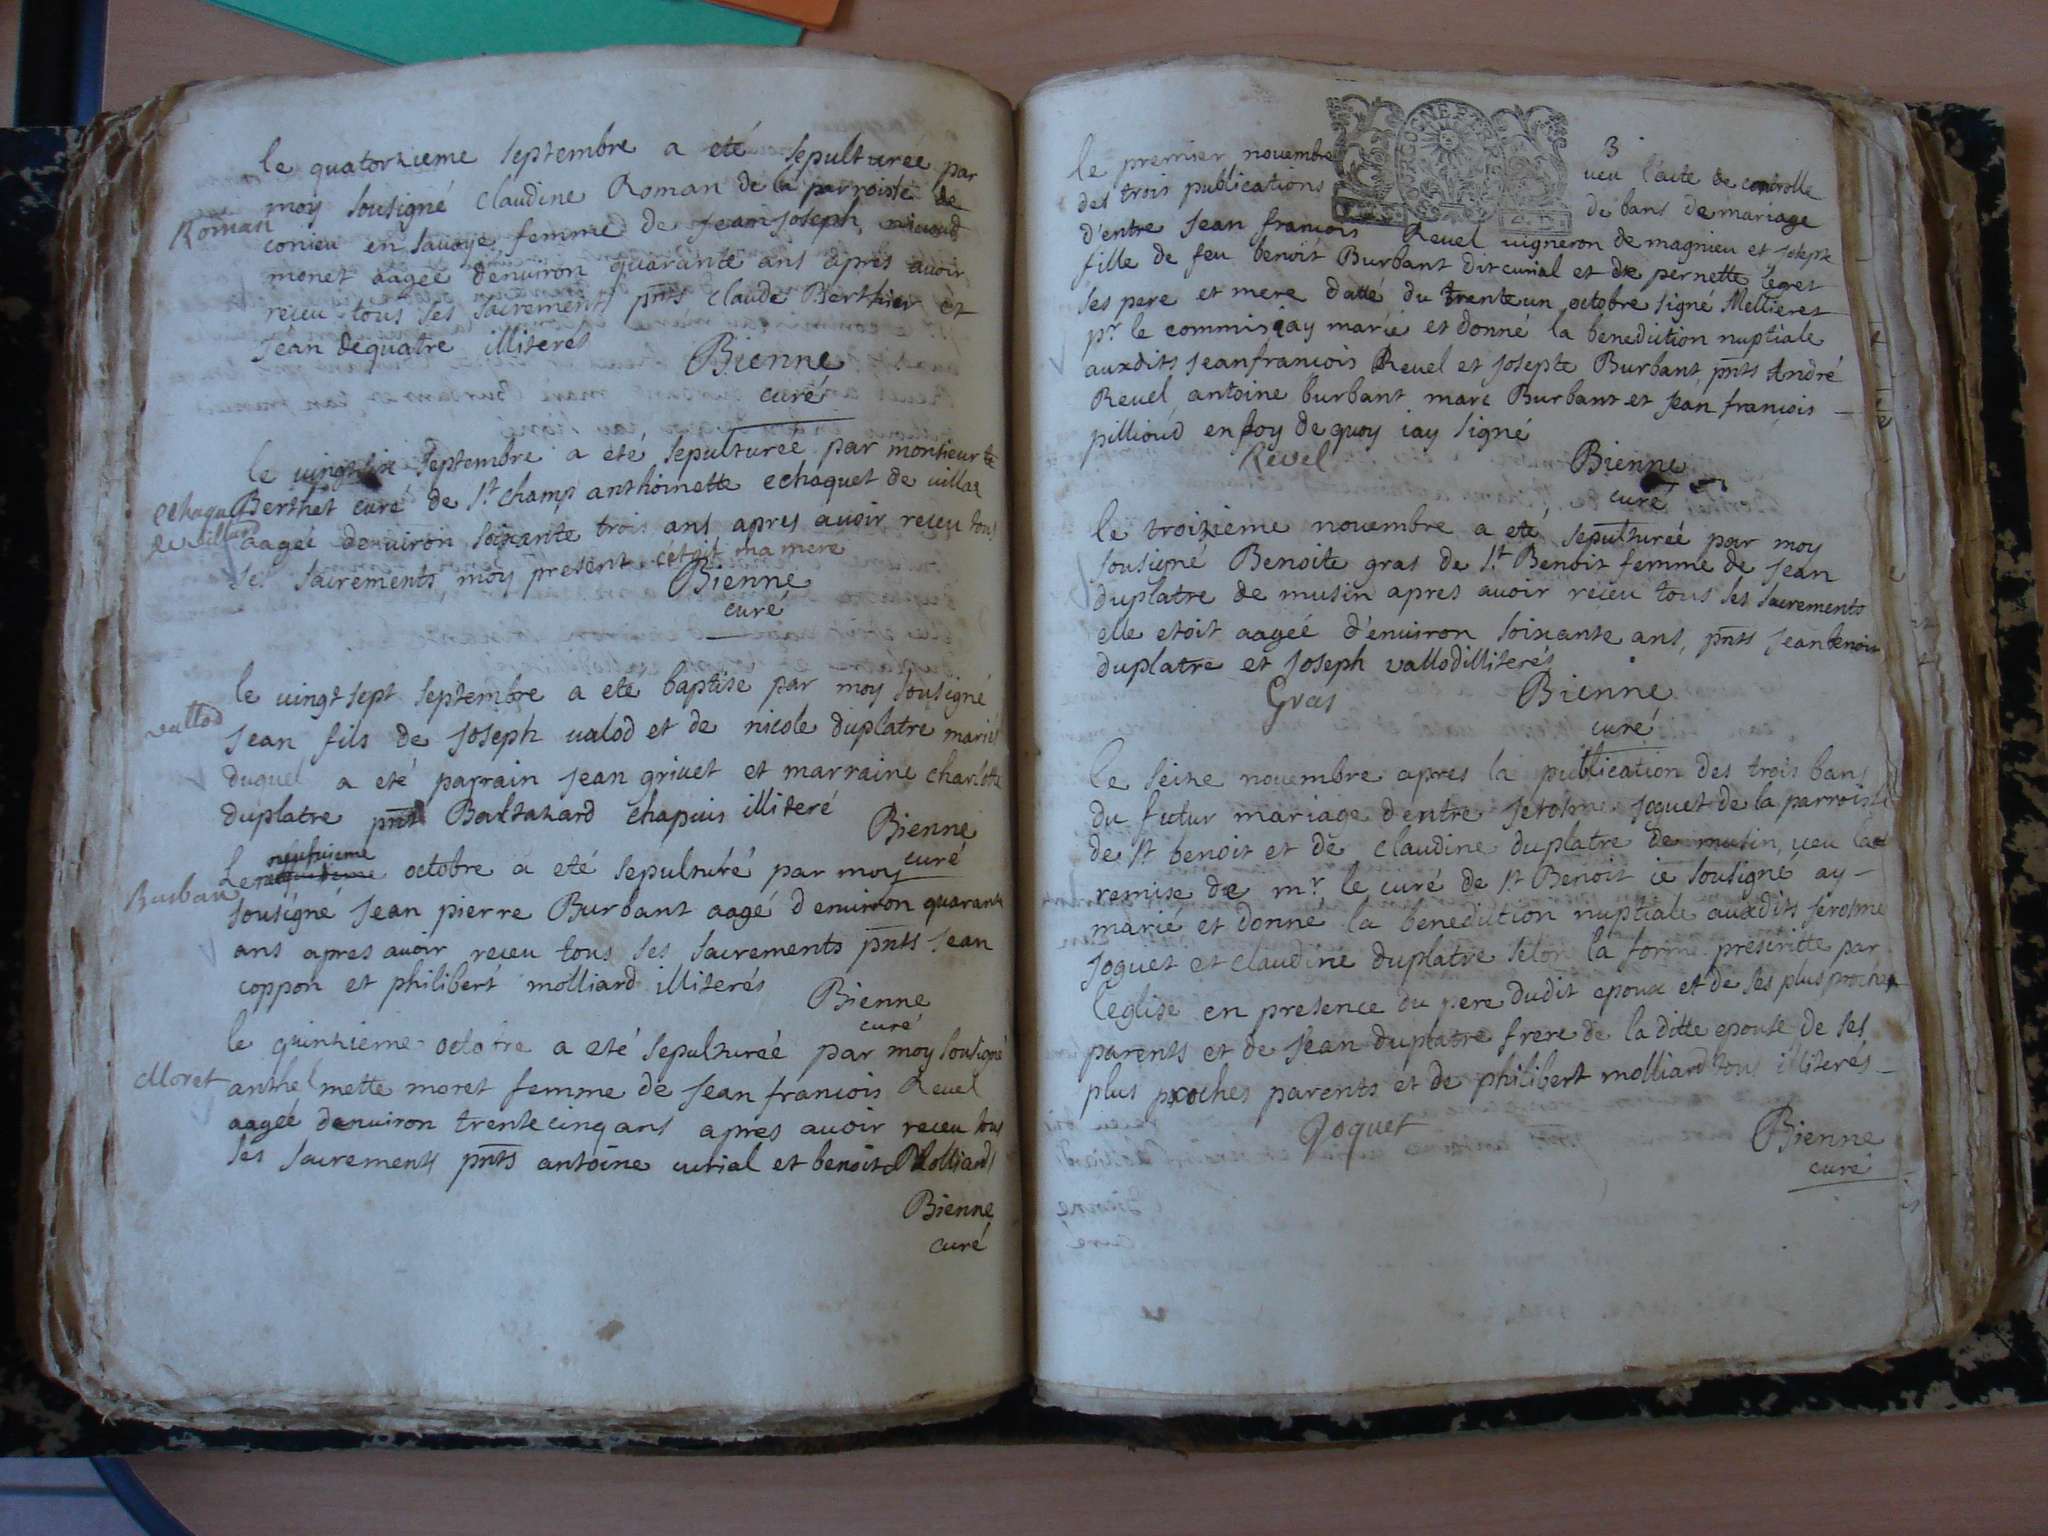 le quatorzieme septembre a eté sepulturée par
moy sousigné claudine Roman de la parroisse de
Roman
conieu en savoye femme de jean joseph
monet aagée denviron quarante ans apres avoir
receu tous ses sacrements pnts claude Berthier et
jean dequatre illiterés
Bienne
curé
le vingt six septembre a eté sepulturée par monsieur
Berthet curé de st champ anthoinette echaquet de villar
echaqu
de villar
aagée denviron soixante trois ans apres avoir receu tous
ses sacrements moy present cétoit ma mere
Bienne
curé
le vingt sept septembre a eté baptise par moy sousigné
vallod
jean fils de joseph valod et de nicole duplatre mariés
duquel a eté parrain jean grivet et marraine charlotte
duplatre pnt Baltazard chapuis illiteré
Bienne
curé
Le neufvieme octobre a eté sepulturé par moy
Burban
sousigné jean pierre Burbant aagé denviron quarante
ans apres avoir receu tous ses sacrements pnts jean
coppon et philibert molliard illiterés
Bienne
curé
le quinzieme octobre a eté sepulturée par moy sousigné
Moret
anthelmette moret femme de jean francois Revel
aagée denviron trente cinq ans apres avoir receu tous
ses sacrements pnts antoine curial et benoit Molliard
Bienne
curé
3
le premier novembre veu l'acte de controlle
des trois publications de bans de mariage
d'entre jean francois Revel vigneron de magnieu et josepte
fille de feu benoit Burbant dit curial et de pernette legret
ses pere et mere datté du trente un octobre signé Mellieret
pr le commis jay marié et donné la benediction nuptiale
auxdits jeanfrancois Revel et josepte Burbant, pnts André
Revel antoine burbant marc Burbant et jean francois
pillioud en foy de quoy iay signé
Revel
Bienne
curé
le troizieme novembre a eté sepulturéé par moy
sousigné Benoite gras de st Benoit femme de jean
duplatre de musin apres avoir receu tous ses sacrements
elle etoit aagéé d'environ soixante ans, pnts jean benoit
duplatre et joseph vallod illiterés
Gras
Bienne
curé
le seize novembre apres la publication des trois bans
du futur mariage d'entre jerosme joguet de la parroisse
de st benoit et de claudine duplatre de musin, veu la
remise de mr le curé de st Benoit ie sousigné ay
marié et donné la benediction nuptiale auxdits jerosme
joguet et claudine duplatre selon la forme prescritte par
l'eglise en presence du pere dudit epoux et de ses plus proches
parents et de jean duplatre frere de la ditte epouse de ses
plus proches parents et de philibert molliard tous illiterés
Joguet
Bienne
curé